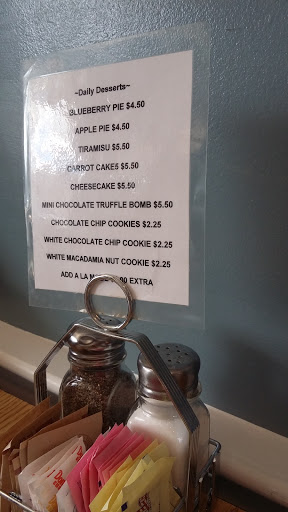 ~Daily Desserts~
BLUEBERRY PIE $4.50
APPLE PIE $4.50
TIRAMISU $5.50
CARROT CAKE5 $5.50
CHEESECAKE $5.50
MINI CHOCOLATE TRUFFLE BOMB $5.50
CHOCOLATE CHIP COOKIES $2.25
WHITE CHOCOLATE CHIP COOKIE $2.25
WHITE MACADAMIA NUT COOKIE $2.25
ADD A LA EXTRA